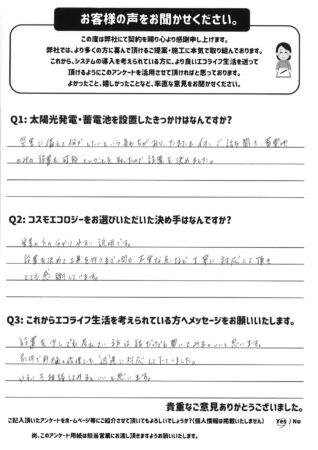 お客様の声をお聞かせください。
この度は弊社にて契約を賜り心より感謝申し上げます。
弊社では、より多くの方に喜んで頂けるご提案・施工に本気で取り組んでおります。
これから、システムの導入を考えられている方に、より良いエコライフ生活を送って
頂けるようにこのアンケートを活用させて頂ければと思っております。
よかったこと、嬉しかったことなど、率直な意見をお聞かせください。
Q1: 太陽光発電・蓄電池を設置したきっかけはなんですか?
災害に備えて何かしたいという気もちがあり、たまたま お話を聞き 蓄電池
のみの設置も可能ということを知ったので設置を決めました。
Q2: コスモエコロジーをお選びいただいた決め手はなんですか?
営業の方の分かりやすい説明です。
設置を決めて工事を行うまでの間も 不安な点など丁寧に対応して頂き
とても感謝しています。
Q3: これからエコライフ生活を考えられている方へメッセージをお願いいたします。
設置を少しでも考えている方は話だけでも聞いてみるといいと思います。
迅速に対応して下さいました。
いろいろ相談してみるといいと思います。
貴重なご意見ありがとうございました。
ご記入頂いたアンケートをホームページ等にご紹介させて頂いてもよろしいでしょうか?(個人情報は掲載いたしません) Yes / No
尚、このアンケート用紙は担当営業にお渡し頂きますようお願いいたします。